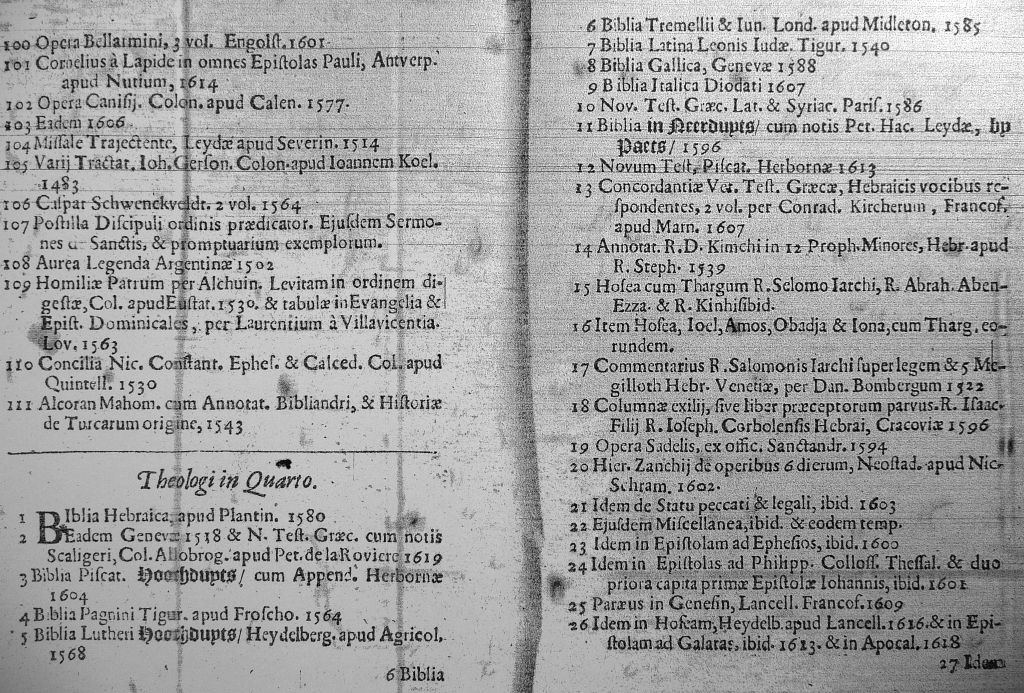 100 Opera Bellarmini, 3 vol. Engolſt. 1601
101 Cornelius à Lapide in omnes Epiſtolas Pauli, Antverp.
apud Nutium, 1614
102 Opera Caniſij. Colon. apud Calen. 1577.
103 Eadem 1606
104 Miſſale Trajectente, Leydæ apud Severin. 1514
105 Varij Tractat. Ioh. Gerſon. Colon. apud Ioannem Koel.
1483
106 Caſpar Schwenckveldt. 2 vol. 1564
107 Poſtilla Diſcipuli ordinis prædicator. Ejuſdem Sermo-
nes Sanctis, & promptuarium exemplorum.
108 Aurea Legenda Argentinæ 1502
109 Homiliæ Patrum per Alchuin. Levitam in ordinem di-
geſtæ, Col. apud Euſtat. 1530. & tabulæ in Evangelia &
Epiſt. Dominicales, per Laurentium à Villavicentia.
Lov. 1563
110 Concilia Nic. Conſtant. Epheſ. & Calced. Col. apud
Quintell. 1530
111 Alcoran Mahom. cum Annotat. Bibliandri, & Hiſtoriæ
de Turcarum origine, 1543
Theologi in Quarto.
1 BIblia Hebraica, apud Plantin. 1580
2 Eadem Genevæ 1518 & N. Teſt. Græc. cum notis
Scaligeri, Col. Allobrog. apud Pet. de la Roviere 1619
3 Biblia Piſcat. Hoochduyts/ cum Append. Herbornæ
1604
4 Biblia Pagnini Tigur. apud Froſcho. 1564
5 Biblia Lutheri Hoochduyts/ Heydelberg. apud Agricol.
1568
6 Biblia
6 Biblia Tremellii & Iun. Lond. apud Midleton. 1585
7 Biblia Latina Leonis Iudæ. Tigur. 1540
8 Biblia Gallica, Genevæ 1588
9 Biblia Italica Diodati 1607
10 Nov. Teſt. Græc. Lat. & Syriac. Pariſ. 1586
11 Biblia in Neerduyts/ cum notis Pet. Hac. Leydæ, by
Paets/ 1596
12 Novum Teſt, Piſcat. Herbornæ 1613
13 Concordantiæ Vet. Teſt. Græcæ, Hebraicis vocibus re-
ſpondentes, 2 vol. per Conrad. Kircherum, Francof.
apud Marn. 1607
14 Annotat. R. D. Kimchi in 12 Proph. Minores, Hebr. apud
R. Steph. 1539
15 Hoſea cum Thargum R. Selomo Iarchi, R. Abrah. Aben-
Ezza. & R. Kinhiſibid.
16 Item Hoſea, Ioel, Amos, Obadja & Iona, cum Tharg. eo-
rundem.
17 Commentarius R. Salomonis Iarchi ſuper legem & 5 Me-
gilloth Hebr. Venetiæ, per Dan. Bombergum 1522
18 Columnæ exilij, ſive liber præceptorum parvus. R. Iſaac
Filij R. Ioſeph. Corbolenſis Hebrai, Cracoviæ 1596
19 Opera Sadelis, ex offic. Sanctandr. 1594
20 Hier. Zanchij de operibus 6 dierum, Neoſtad. apud Nic.
Schram. 1602.
21 Idem de Statu peccati & legali, ibid. 1603
22 Ejuſdem Miſcellanea, ibid. & eodem temp.
23 Idem in Epiſtolam ad Epheſios, ibid. 1600
24 Idem in Epiſtolas ad Philipp. Coloſſ. Theſſal. & duo
priora capita primæ Epiſtolæ Iohannis, ibid. 1601
25 Paræus in Geneſin, Lancell. Francof. 1609
26 Idem in Hoſeam, Heydelb. apud Lancell. 1616. & in Epi-
ſtolam ad Galatas, ibid. 1613. & in Apocal. 1618
27 Idem